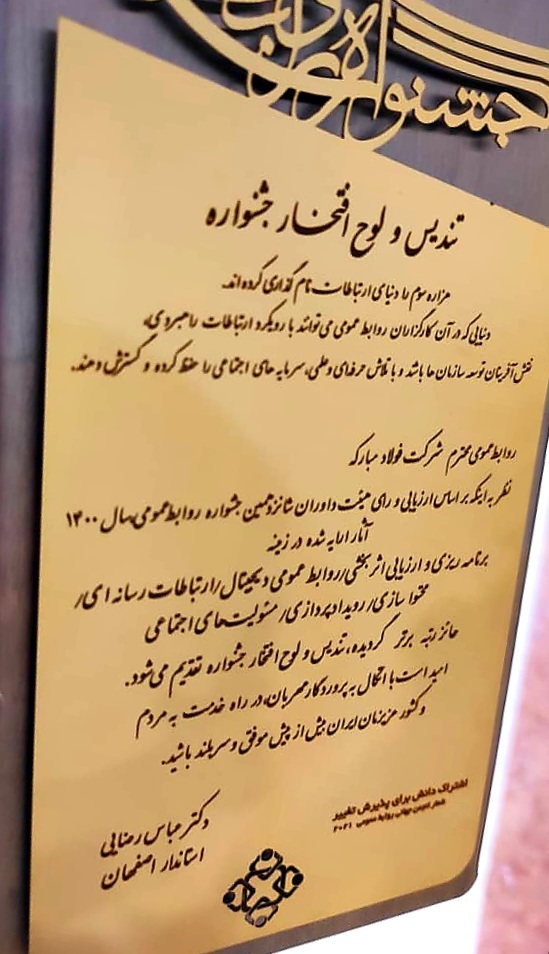 جشنواره
تندیس و لوح افتخار جشنواره
هزاره سوم را دنیای ارتباطات نام گذاری کرده اند.
دنیایی که در آن کارگزاران روابط عمومی می توانند با رویکرد ارتباطات راهبردی،
نقش آفرینان توسعه سازمان ها باشد و با تلاش حرفه ای و علمی، سرمایه های اجتماعی را حفظ کرده و گسترش دهند.
روابط عمومی محترم شرکت فولاد مبارکه
نظر به اینکه بر اساس ارزیابی و رای هیئت داوران شانزدهمین جشنواره روابط عمومی سال ۱۴۰۰
آثار ارایه شده در زمینه
برنامه ریزی و ارزیابی اثربخشی/ روابط عمومی دیجیتال/ ارتباطات رسانه ای/
محتوا سازی/ رویداد پردازی/ مسئولیت های اجتماعی
حائز رتبه برتر گردیده، تندیس و لوح افتخار جشنواره تقدیم می شود.
امید است با اتکال به پروردگار مهربان، در راه خدمت به مردم
و کشور عزیزمان ایران بیش از پیش موفق و سربلند باشید.
اشتراک دانش برای پذیرش تغییر
شعار انجمن جهانی روابط عمومی ۲۰۲۱
دکتر عباس رضایی
استاندار اصفهان